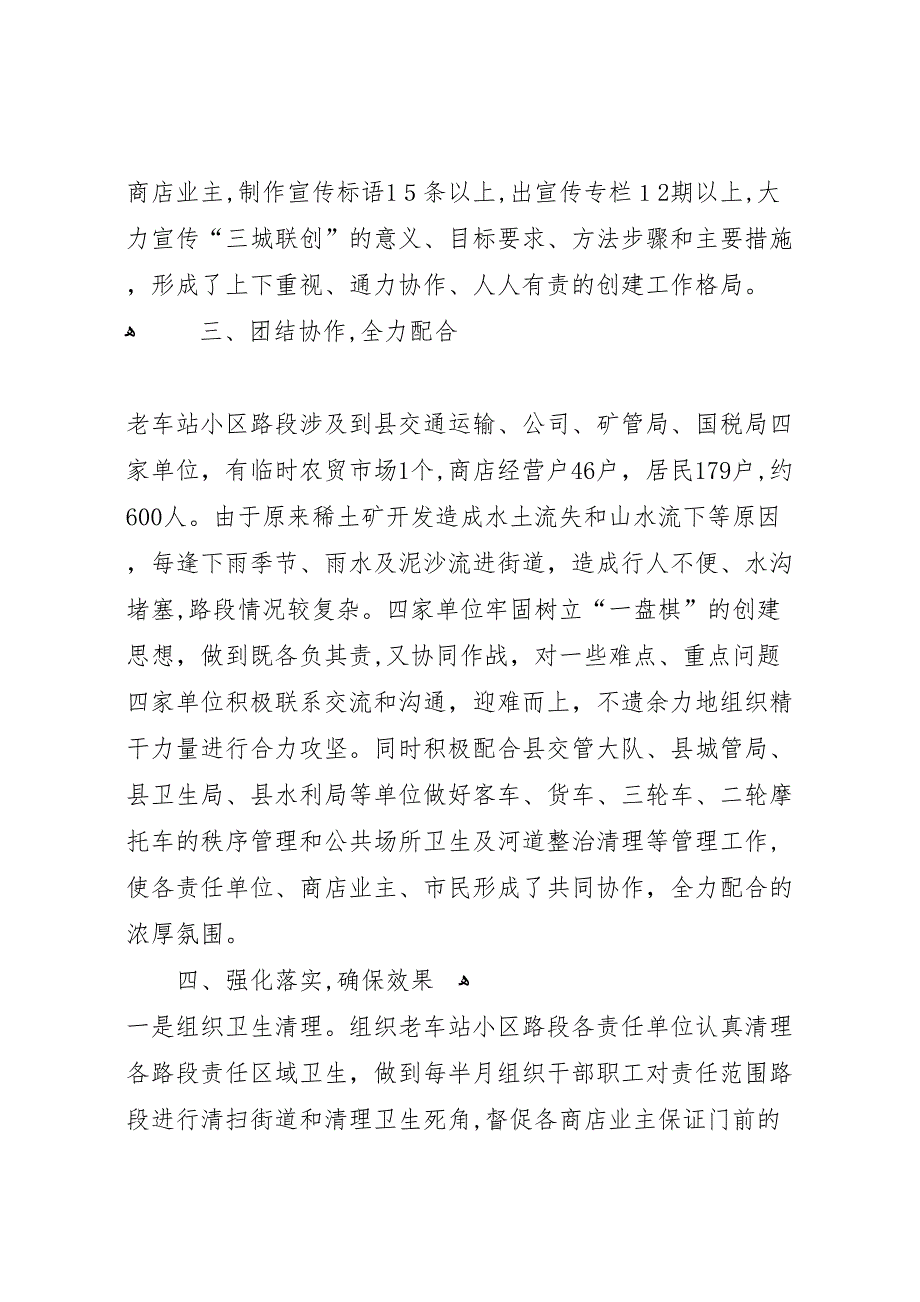 商店业主,制作宣传标语15条以上,出宣传专栏12期以上,大
力宣传“三城联创”的意义、目标要求、方法步骤和主要措施
，形成了上下重视、通力协作、人人有责的创建工作格局。
ﻫ 三、团结协作,全力配合
老车站小区路段涉及到县交通运输、公司、矿管局、国税局四
家单位，有临时农贸市场1个,商店经营户46户，居民179户,约
600人。由于原来稀土矿开发造成水土流失和山水流下等原因
，每逢下雨季节、雨水及泥沙流进街道，造成行人不便、水沟
堵塞,路段情况较复杂。四家单位牢固树立“一盘棋”的创建
思想，做到既各负其责,又协同作战，对一些难点、重点问题
四家单位积极联系交流和沟通，迎难而上，不遗余力地组织精
干力量进行合力攻坚。同时积极配合县交管大队、县城管局、
县卫生局、县水利局等单位做好客车、货车、三轮车、二轮摩
托车的秩序管理和公共场所卫生及河道整治清理等管理工作,
使各责任单位、商店业主、市民形成了共同协作，全力配合的
浓厚氛围。
四、强化落实,确保效果 ﻫ
一是组织卫生清理。组织老车站小区路段各责任单位认真清理
各路段责任区域卫生，做到每半月组织干部职工对责任范围路
段进行清扫街道和清理卫生死角,督促各商店业主保证门前的